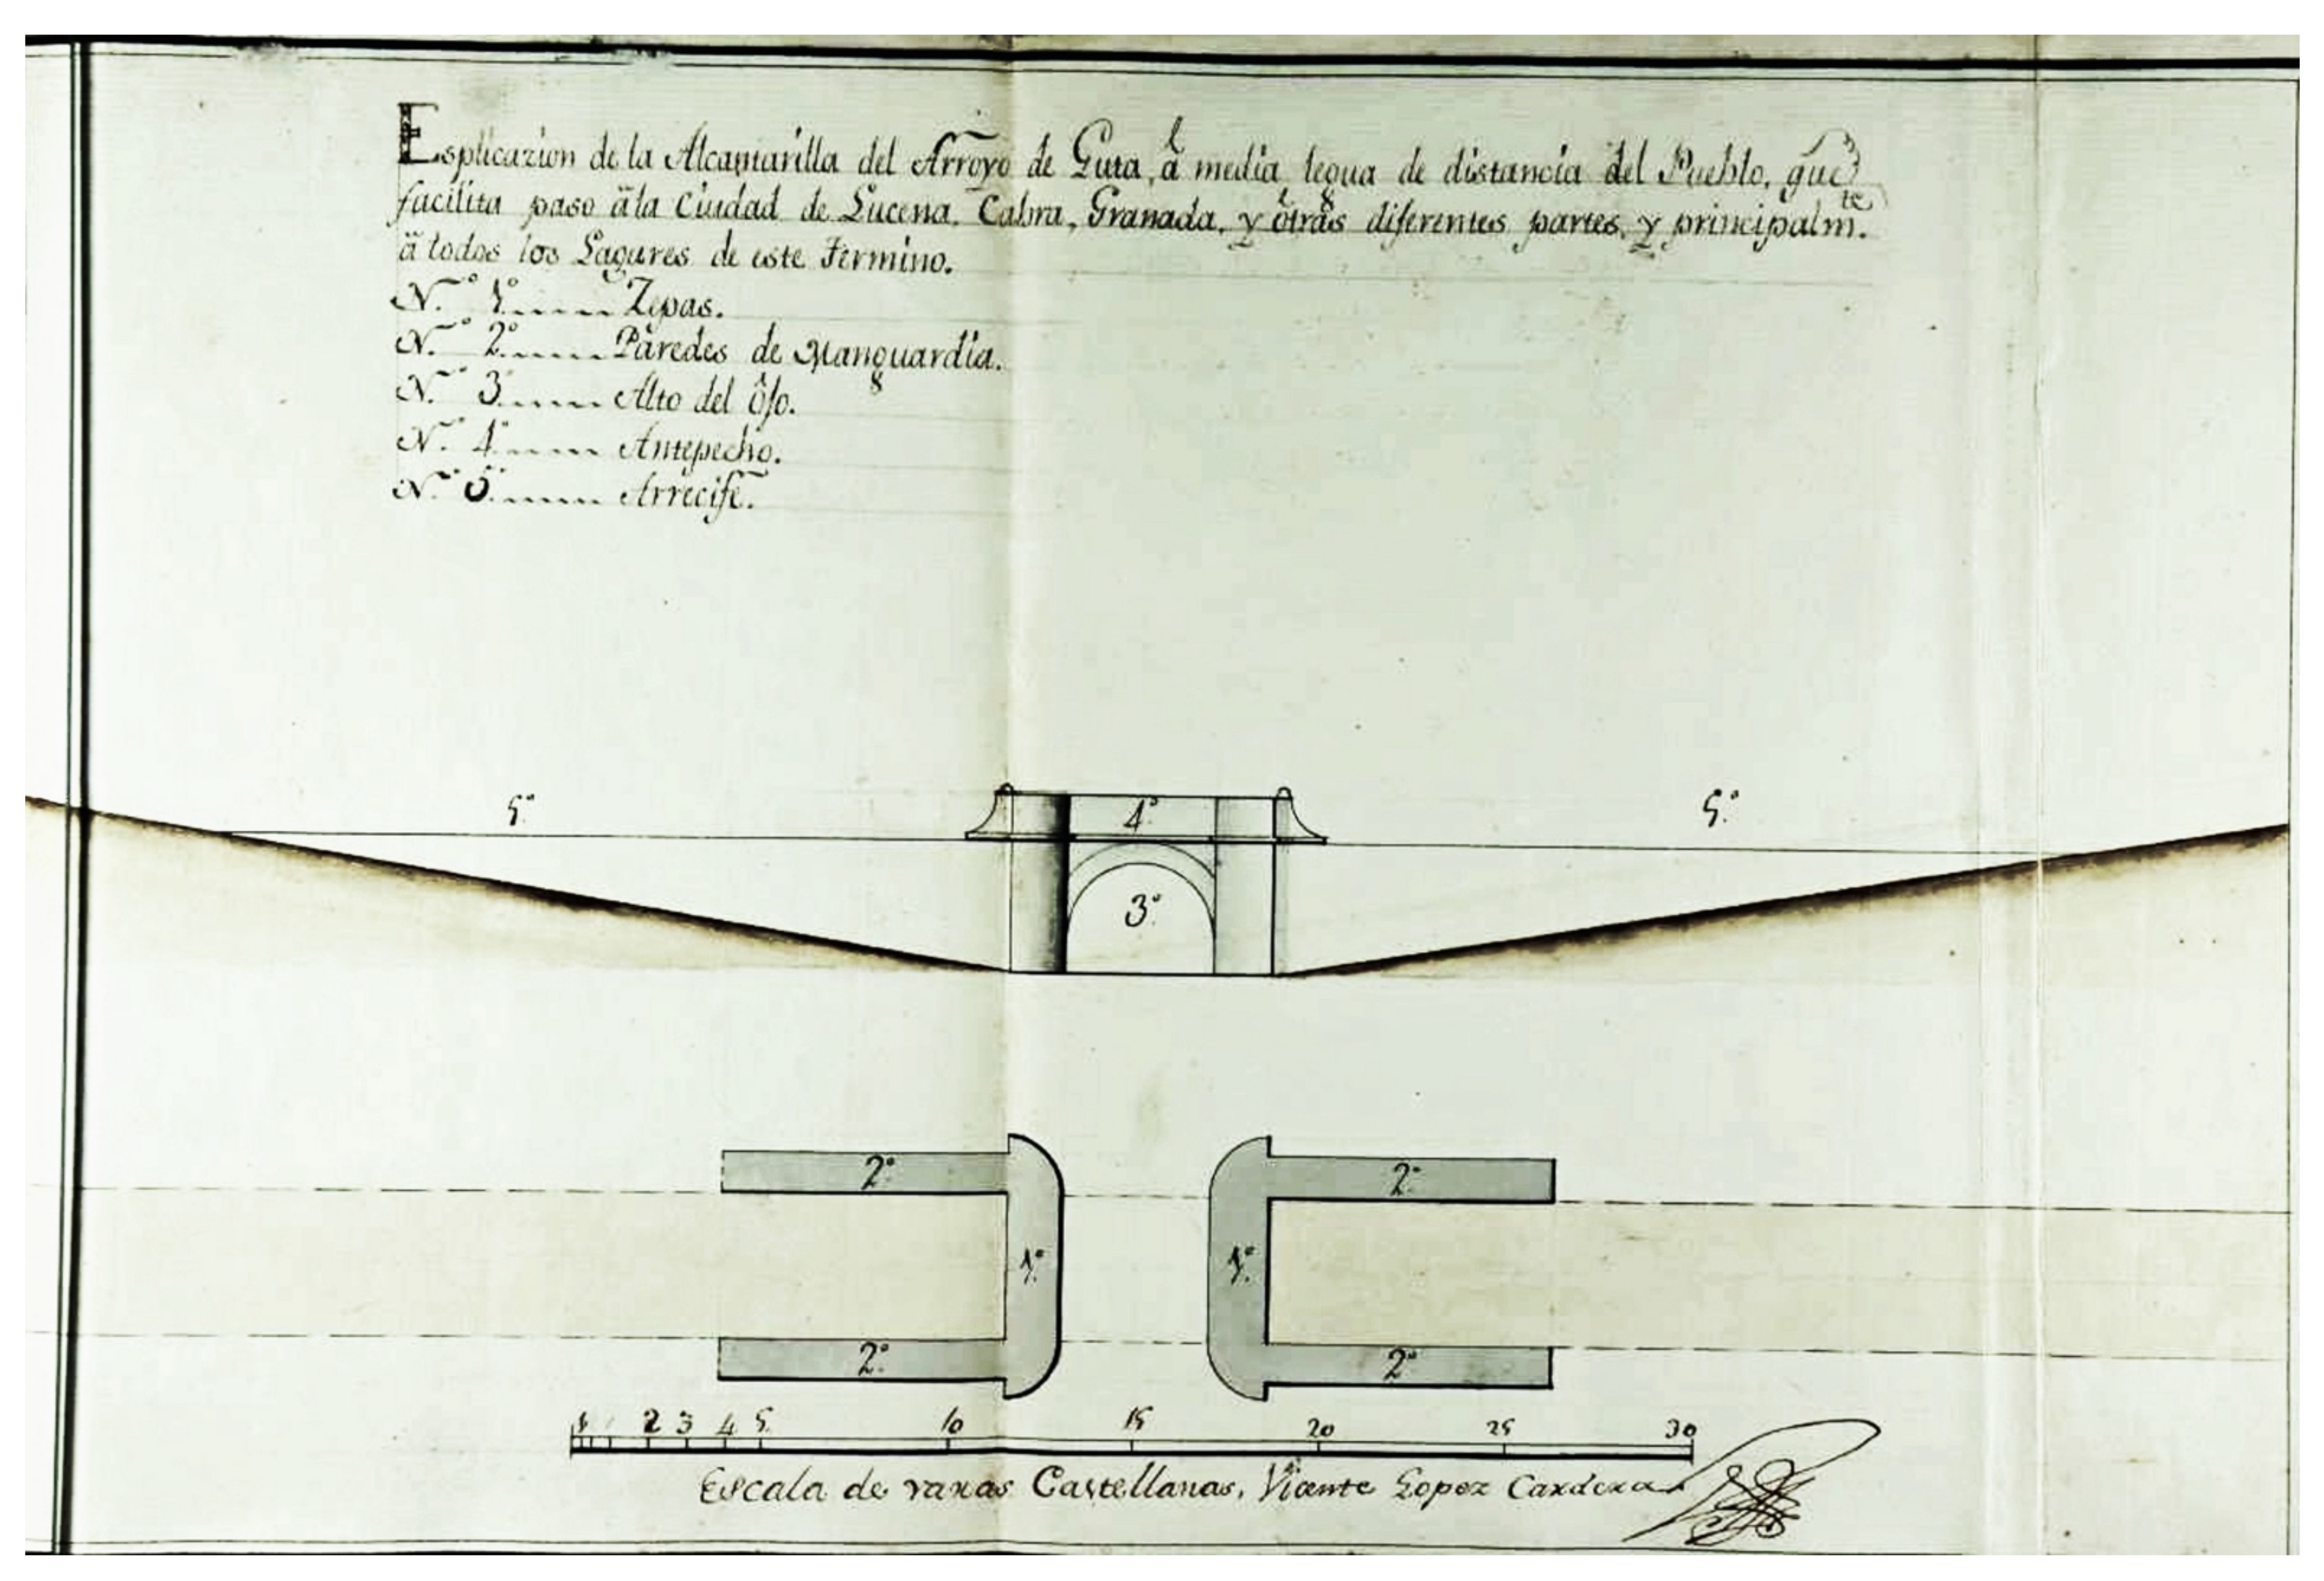 Esplicazion de la Alcantarilla del Arroyo de Guta, á media legua de distancia del Pueblo, que
facilita paso äla Ciudad de Lucena, Cabra, Granada, y ôtras diferentes partes, y principalm.te
ä todos los Lagares de este Termino.
N.º 1º...... Zepas.
N.º 2º...... Paredes de Manguardia.
N.º 3º...... Alto del ôjo.
N.º 4º...... Antepecho.
N.º 5º...... Arrecife.
5º 4º 5º
3º
2º 2º
1º 1º
2º 2º
1 2 3 4 5 10 15 20 25 30
Escala de varas Castellanas. Vicente Lopez Cardera